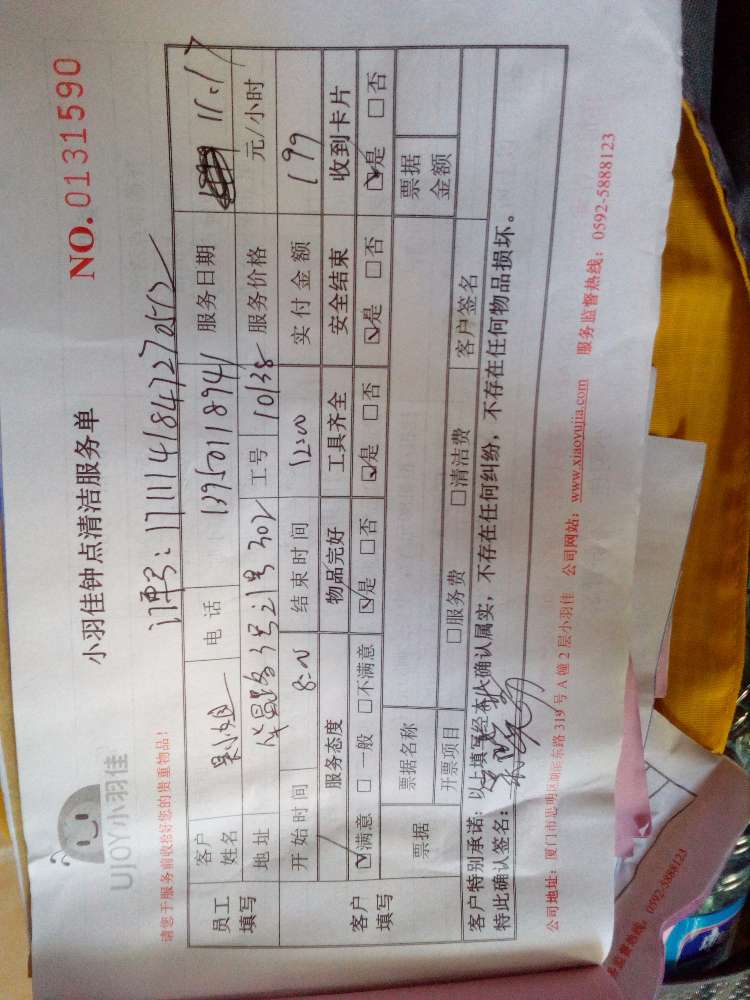 UJOY小羽佳
小羽佳钟点清洁服务单
NO.0131590
请您于服务前收拾好您的贵重物品!
订单号:
员工填写 客户姓名 电话 13950118941 服务日期 11.17
地址 302 工号 10138 服务价格 元/小时
客户填写 开始时间 8:00 结束时间 12:00 实付金额 199
服务态度 物品完好 工具齐全 安全结束 收到卡片
☑满意 □一般 □不满意 ☑是 □否 ☑是 □否 ☑是 □否 ☑是 □否
票据 票据名称 票据金额
开票项目 □服务费 □清洁费 客户签名
客户特别承诺:以上填写经本人确认属实,不存在任何纠纷,不存在任何物品损坏。
特此确认签名:
公司地址:厦门市思明区湖滨东路319号A幢2层小羽佳 公司网站:www.xiaoyujia.com 服务监督热线:0592-5888123
监督热线:0592-5888123